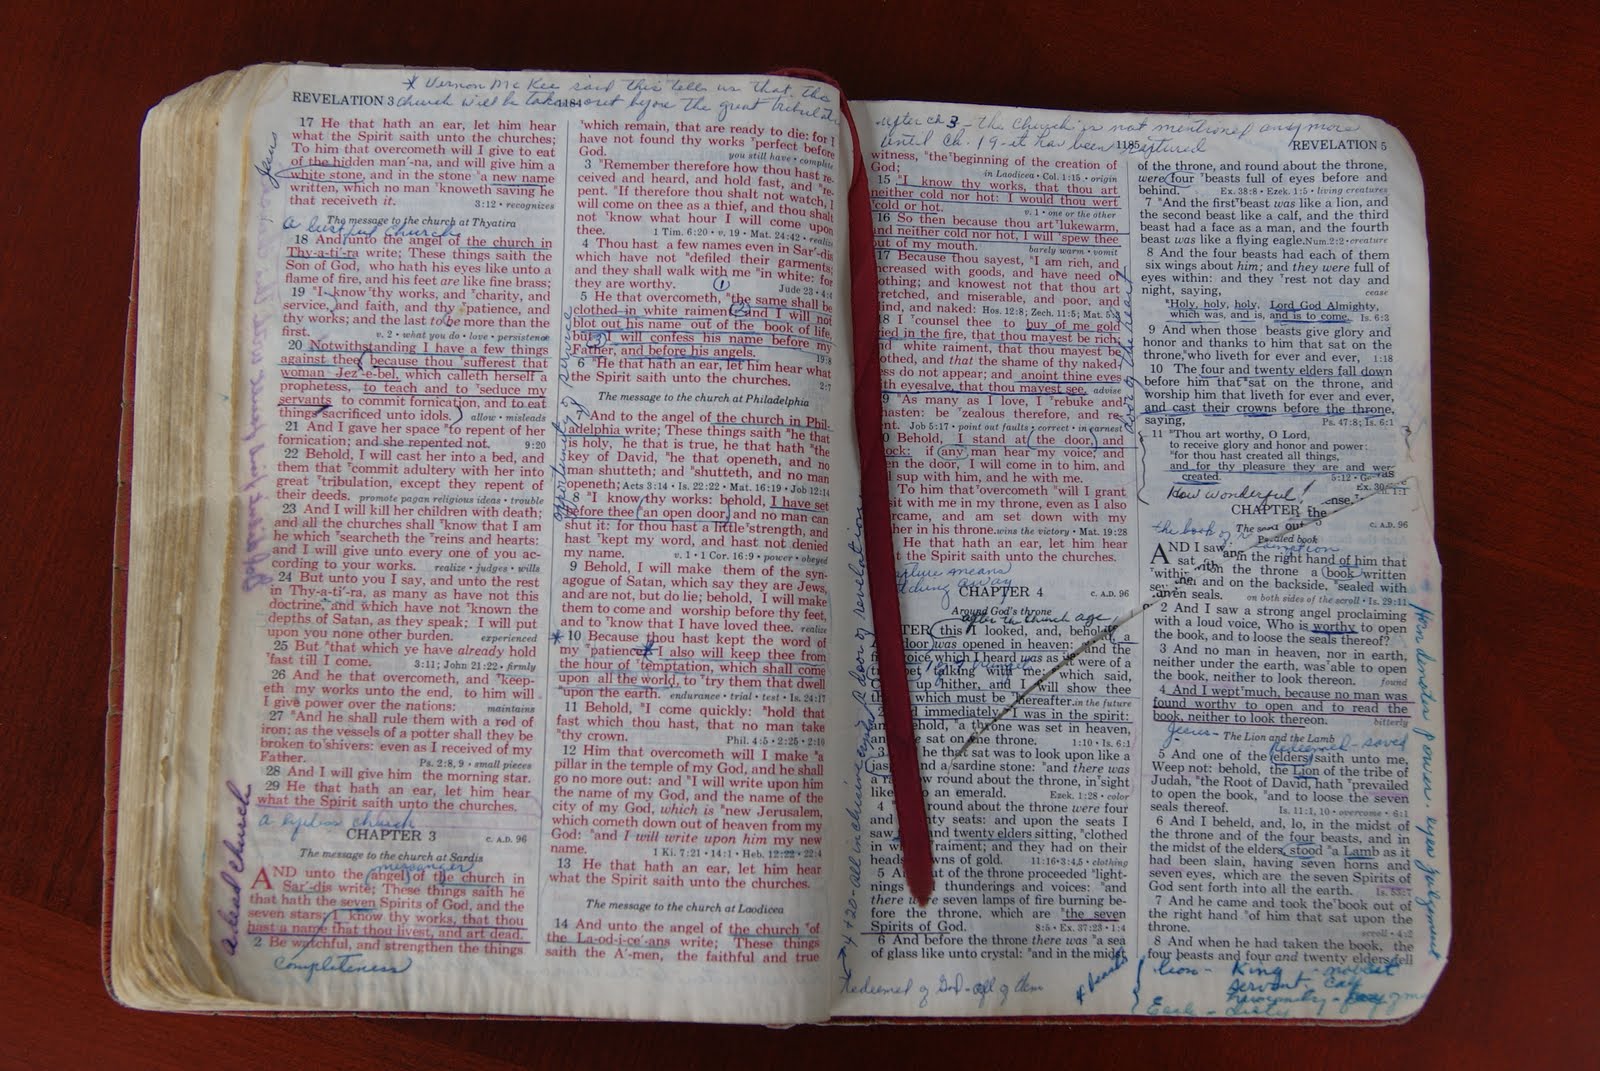 * Vernon McKee said this tells us that the
church will be taken out before the great tribulation
REVELATION 3
1184
17 He that hath an ear, let him hear
what the Spirit saith unto the churches;
To him that overcometh will I give to eat
of the hidden man′-na, and will give him a
white stone, and in the stone a new name
written, which no man knoweth saving he
that receiveth it. 3:12 • recognizes
Jesus
The message to the church at Thyatira
a lustful church
18 And unto the angel of the church in
Thy-a-ti′-ra write; These things saith the
Son of God, who hath his eyes like unto a
flame of fire, and his feet are like fine brass;
19 I know thy works, and charity, and
service, and faith, and thy patience, and
thy works; and the last to be more than the
first. v. 2 • what you do • love • persistence
20 Notwithstanding I have a few things
against thee, because thou sufferest that
woman Jez′-e-bel, which calleth herself a
prophetess, to teach and to seduce my
servants to commit fornication, and to eat
things sacrificed unto idols. allow • misleads
21 And I gave her space to repent of her
fornication; and she repented not. 9:20
22 Behold, I will cast her into a bed, and
them that commit adultery with her into
great tribulation, except they repent of
their deeds. promote pagan religious ideas • trouble
23 And I will kill her children with death;
and all the churches shall know that I am
he which searcheth the reins and hearts:
and I will give unto every one of you ac-
cording to your works. realize • judges • wills
24 But unto you I say, and unto the rest
in Thy-a-ti′-ra, as many as have not this
doctrine, and which have not known the
depths of Satan, as they speak; I will put
upon you none other burden. experienced
25 But that which ye have already hold
fast till I come. 3:11; John 21:22 • firmly
26 And he that overcometh, and keep-
eth my works unto the end, to him will
I give power over the nations: maintains
27 And he shall rule them with a rod of
iron; as the vessels of a potter shall they be
broken to shivers: even as I received of my
Father. Ps. 2:8, 9 • small pieces
28 And I will give him the morning star.
29 He that hath an ear, let him hear
what the Spirit saith unto the churches.
a lifeless church
a dead church
CHAPTER 3 C. A.D. 96
The message to the church at Sardis
messenger
AND unto the angel of the church in
Sar′-dis write; These things saith he
that hath the seven Spirits of God, and the
seven stars; I know thy works, that thou
hast a name that thou livest, and art dead.
2 Be watchful, and strengthen the things
completeness
which remain, that are ready to die: for I
have not found thy works perfect before
God. you still have • complete
3 Remember therefore how thou hast re-
ceived and heard, and hold fast, and re-
pent. If therefore thou shalt not watch, I
will come on thee as a thief, and thou shalt
not know what hour I will come upon
thee. 1 Tim. 6:20 • v. 19 • Mat. 24:42 • realize
4 Thou hast a few names even in Sar′-dis
which have not defiled their garments;
and they shall walk with me in white: for
they are worthy. Jude 23 • 4:4
5 He that overcometh, the same shall be
clothed in white raiment; and I will not
blot out his name out of the book of life,
but I will confess his name before my
Father, and before his angels. 19:8
6 He that hath an ear, let him hear what
the Spirit saith unto the churches. 2:7
The message to the church at Philadelphia
And to the angel of the church in Phil-
adelphia write; These things saith he that
is holy, he that is true, he that hath the
key of David, he that openeth, and no
man shutteth; and shutteth, and no man
openeth; Acts 3:14 • Is. 22:22 • Mat. 16:19 • Job 12:14
8 I know thy works: behold, I have set
before thee an open door, and no man can
shut it: for thou hast a little strength, and
hast kept my word, and hast not denied
my name. v. 1 • 1 Cor. 16:9 • power • obeyed
opportunity of service
9 Behold, I will make them of the syn-
agogue of Satan, which say they are Jews,
and are not, but do lie; behold, I will make
them to come and worship before thy feet,
and to know that I have loved thee. realize
* 10 Because thou hast kept the word of
my patience, * I also will keep thee from
the hour of temptation, which shall come
upon all the world, to try them that dwell
upon the earth. endurance • trial • test • Is. 24:17
11 Behold, I come quickly: hold that
fast which thou hast, that no man take
thy crown. Phil. 4:5 • 2:25 • 2:10
12 Him that overcometh will I make a
pillar in the temple of my God, and he shall
go no more out: and I will write upon him
the name of my God, and the name of the
city of my God, which is new Jerusalem,
which cometh down out of heaven from my
God: and I will write upon him my new
name. 1 Ki. 7:21 • 14:1 • Heb. 12:22 • 22:4
13 He that hath an ear, let him hear
what the Spirit saith unto the churches.
The message to the church at Laodicea
14 And unto the angel of the church of
the La-od-i-ce′-ans write; These things
saith the A′-men, the faithful and true
After ch 3 - the Church is not mentioned anymore
until ch. 19 - it has been raptured
1185
REVELATION 5
witness, the beginning of the creation of
God; in Laodicea • Col. 1:15 • origin
15 I know thy works, that thou art
neither cold nor hot: I would thou wert
cold or hot. v. 1 • one or the other
16 So then because thou art lukewarm,
and neither cold nor hot, I will spew thee
out of my mouth. barely warm • vomit
17 Because thou sayest, I am rich, and
increased with goods, and have need of
nothing; and knowest not that thou art
wretched, and miserable, and poor, and
blind, and naked: Hos. 12:8; Zech. 11:5; Mat. 5:3
18 I counsel thee to buy of me gold
tried in the fire, that thou mayest be rich;
and white raiment, that thou mayest be
clothed, and that the shame of thy naked-
ness do not appear; and anoint thine eyes
with eyesalve, that thou mayest see. advise
19 As many as I love, I rebuke and
chasten: be zealous therefore, and re-
pent. Job 5:17 • point out faults • correct • in earnest
20 Behold, I stand at the door, and
knock: if any man hear my voice, and
open the door, I will come in to him, and
will sup with him, and he with me.
door of the heart
To him that overcometh will I grant
to sit with me in my throne, even as I also
overcame, and am set down with my
Father in his throne. wins the victory • Mat. 19:28
He that hath an ear, let him hear
what the Spirit saith unto the churches.
CHAPTER 4 C. A.D. 96
Around God's throne
after the church age
AFTER this I looked, and, behold, a
door was opened in heaven: and the
first voice which I heard was as it were of a
trumpet talking with me; which said,
Come up hither, and I will show thee
things which must be hereafter. in the future
And immediately I was in the spirit:
and, behold, a throne was set in heaven,
and one sat on the throne. 1:10 • Is. 6:1
3 And he that sat was to look upon like a
jasper and a sardine stone: and there was
a rainbow round about the throne, in sight
like unto an emerald. Ezek. 1:28 • color
4 And round about the throne were four
and twenty seats: and upon the seats I
saw four and twenty elders sitting, clothed
in white raiment; and they had on their
heads crowns of gold. 11:16 • 3:4,5 • clothing
5 And out of the throne proceeded light-
nings and thunderings and voices: and
there were seven lamps of fire burning be-
fore the throne, which are the seven
Spirits of God. 8:5 • Ex. 37:23 • 1:4
6 And before the throne there was a sea
of glass like unto crystal: and in the midst
Redeemed of God - all of them
4 beasts
door of revelation
of the throne, and round about the throne,
were four beasts full of eyes before and
behind. Ex. 38:8 • Ezek. 1:5 • living creatures
7 And the first beast was like a lion, and
the second beast like a calf, and the third
beast had a face as a man, and the fourth
beast was like a flying eagle. Num. 2:2 • creature
8 And the four beasts had each of them
six wings about him; and they were full of
eyes within: and they rest not day and
night, saying, cease
Holy, holy, holy, Lord God Almighty,
which was, and is, and is to come. Is. 6:3
9 And when those beasts give glory and
honor and thanks to him that sat on the
throne, who liveth for ever and ever, 1:18
10 The four and twenty elders fall down
before him that sat on the throne, and
worship him that liveth for ever and ever,
and cast their crowns before the throne,
saying, Ps. 47:8; Is. 6:1
11 Thou art worthy, O Lord,
to receive glory and honor and power:
for thou hast created all things,
and for thy pleasure they are and were
created. 5:12
How wonderful!
CHAPTER 5 C. A.D. 96
the book of
The sealed book
AND I saw in the right hand of him that
sat on the throne a book written
within and on the backside, sealed with
seven seals. on both sides of the scroll • Is. 29:11
2 And I saw a strong angel proclaiming
with a loud voice, Who is worthy to open
the book, and to loose the seals thereof?
3 And no man in heaven, nor in earth,
neither under the earth, was able to open
the book, neither to look thereon. found
4 And I wept much, because no man was
found worthy to open and to read the
book, neither to look thereon. bitterly
Jesus - The Lion and the Lamb
Redeemed - saved
5 And one of the elders saith unto me,
Weep not: behold, the Lion of the tribe of
Judah, the Root of David, hath prevailed
to open the book, and to loose the seven
seals thereof. Is. 11:1, 10 • overcome • 6:1
6 And I beheld, and, lo, in the midst of
the throne and of the four beasts, and in
the midst of the elders, stood a Lamb as it
had been slain, having seven horns and
seven eyes, which are the seven Spirits of
God sent forth into all the earth. Is. 53:7
7 And he came and took the book out of
the right hand of him that sat upon the
throne. scroll • 4:2
8 And when he had taken the book, the
four beasts and four and twenty elders fell
Horn denotes power. eyes judgment
lion - King - noblest
servant - calf
humanity -
Eagle - Deity